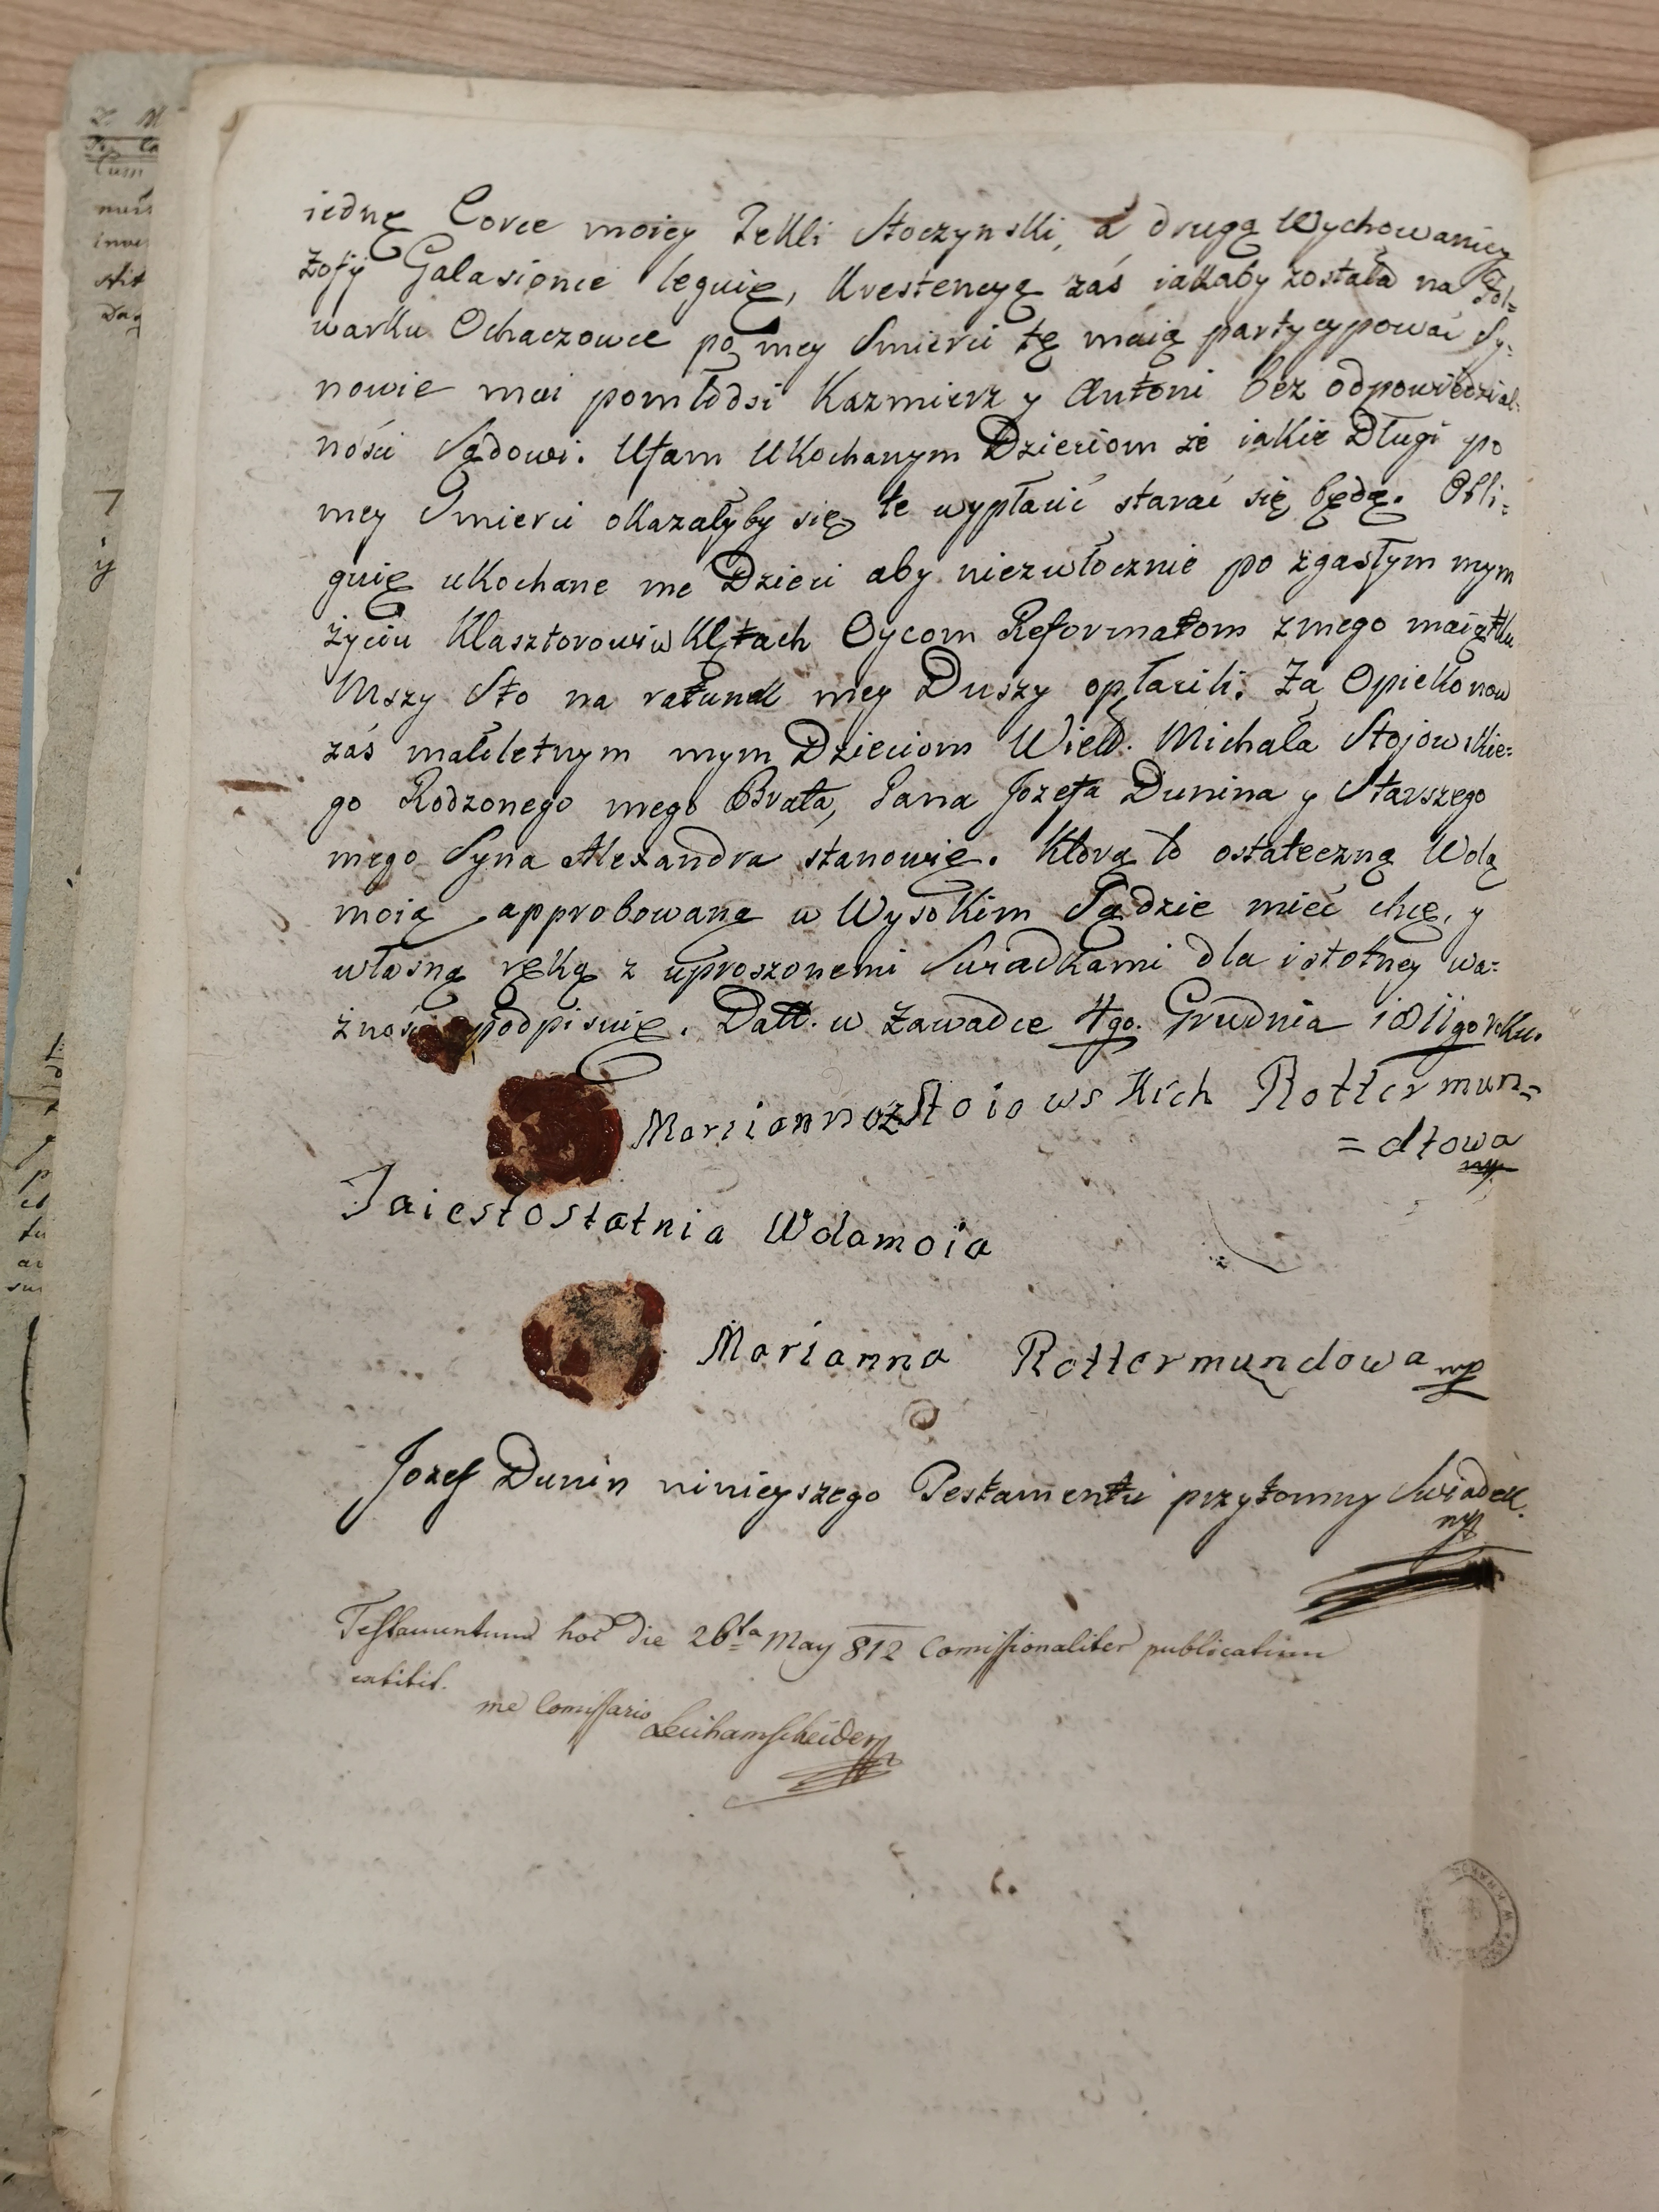 iednę Corce moiey Tekli Stoczynski, a drugą Wychowanicy
Zofy Galasionce leguię, Krestencyą zaś iakaby została na Fol=
warku Ochaczowce po mey Smierci tę maią partycypować Sy=
nowie moi pomłodsi Kazmierz y Antoni bez odpowiedzial=
ności Sądowi. Ufam Ukochanym Dzieciom że iakie Długi po
mey Smierci okazałyby się, te wypłacić starać się będą. Obli=
guię ukochane me Dzieci aby niezwłocznie po zgasłym mym
życiu Klasztorowi w Kętach Oycom Reformatom z mego maiątku
Mszy Sto na ratunek mey Duszy opłacili. Za Opiekonow
zaś małoletnym mym Dzieciom Wield. Michała Stojowskie=
go Rodzonego mego Brata, Pana Jozefa Dunina y Starszego
mego Syna Alexandra stanowię. Ktorą to ostateczną Wolą
moią approbowaną w Wysokim Sądzie mieć chcę, y
własną ręką z uproszonemi Swiadkami dla istotney wa=
żności podpisuię. Datt. w Zawadce 4go. Grudnia 1811go roku.
Marianna z Stoiowskich Rottermun=
= dtowa
mp
Ta iest ostatnia Wola moia
Marianna Rottermundowa mp
Jozef Dunin ninieyszego Testamentu przytomny Swiadek.
mp
Testamentum hoc die 26ta May 812 Comissionaliter publicatum
extitit.
me Comissario